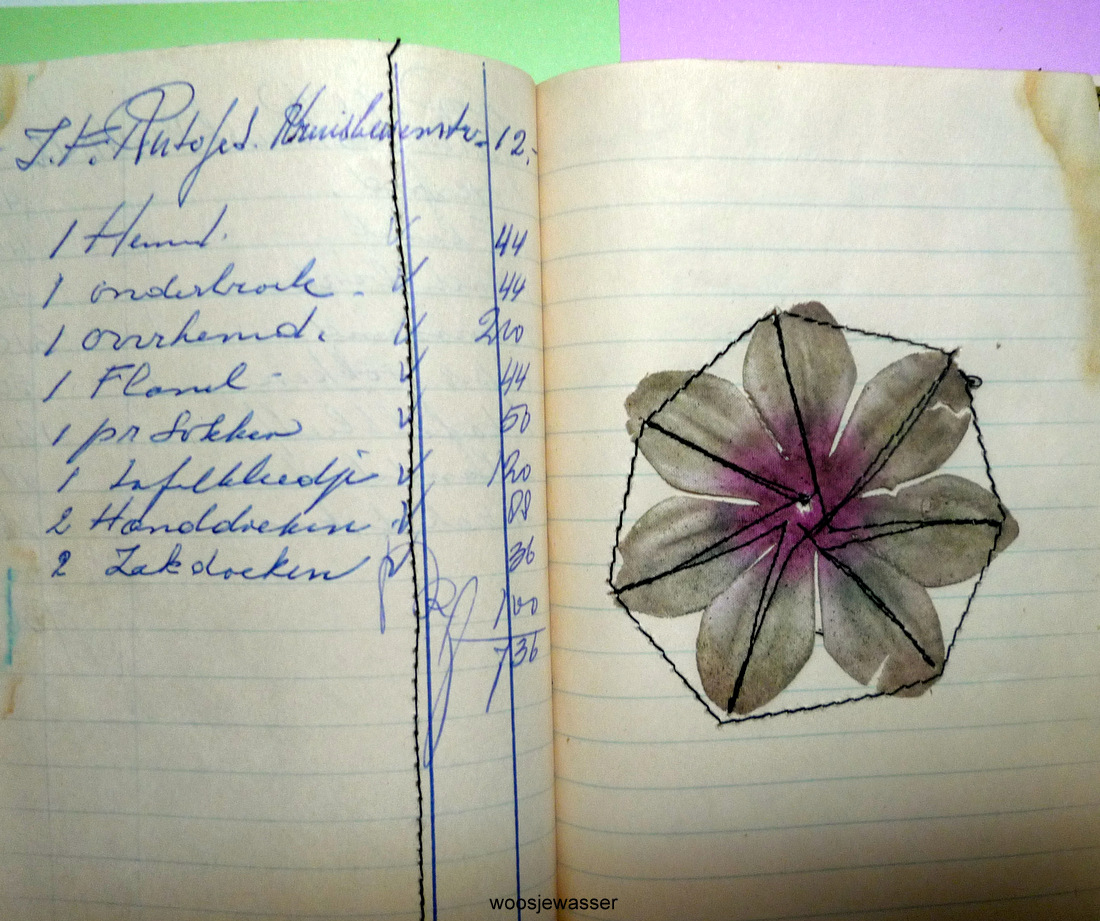 1 Hemd. V 44
1 onderbroek - V 44
1 overhemd. V 2 10
1 Flanel - V 44
1 pr Sokken V 50
1 Tafelkleedje V 1 20
2 Handdoeken V 88
2 Zakdoeken V 36
1 00
7 36
woosjewasser